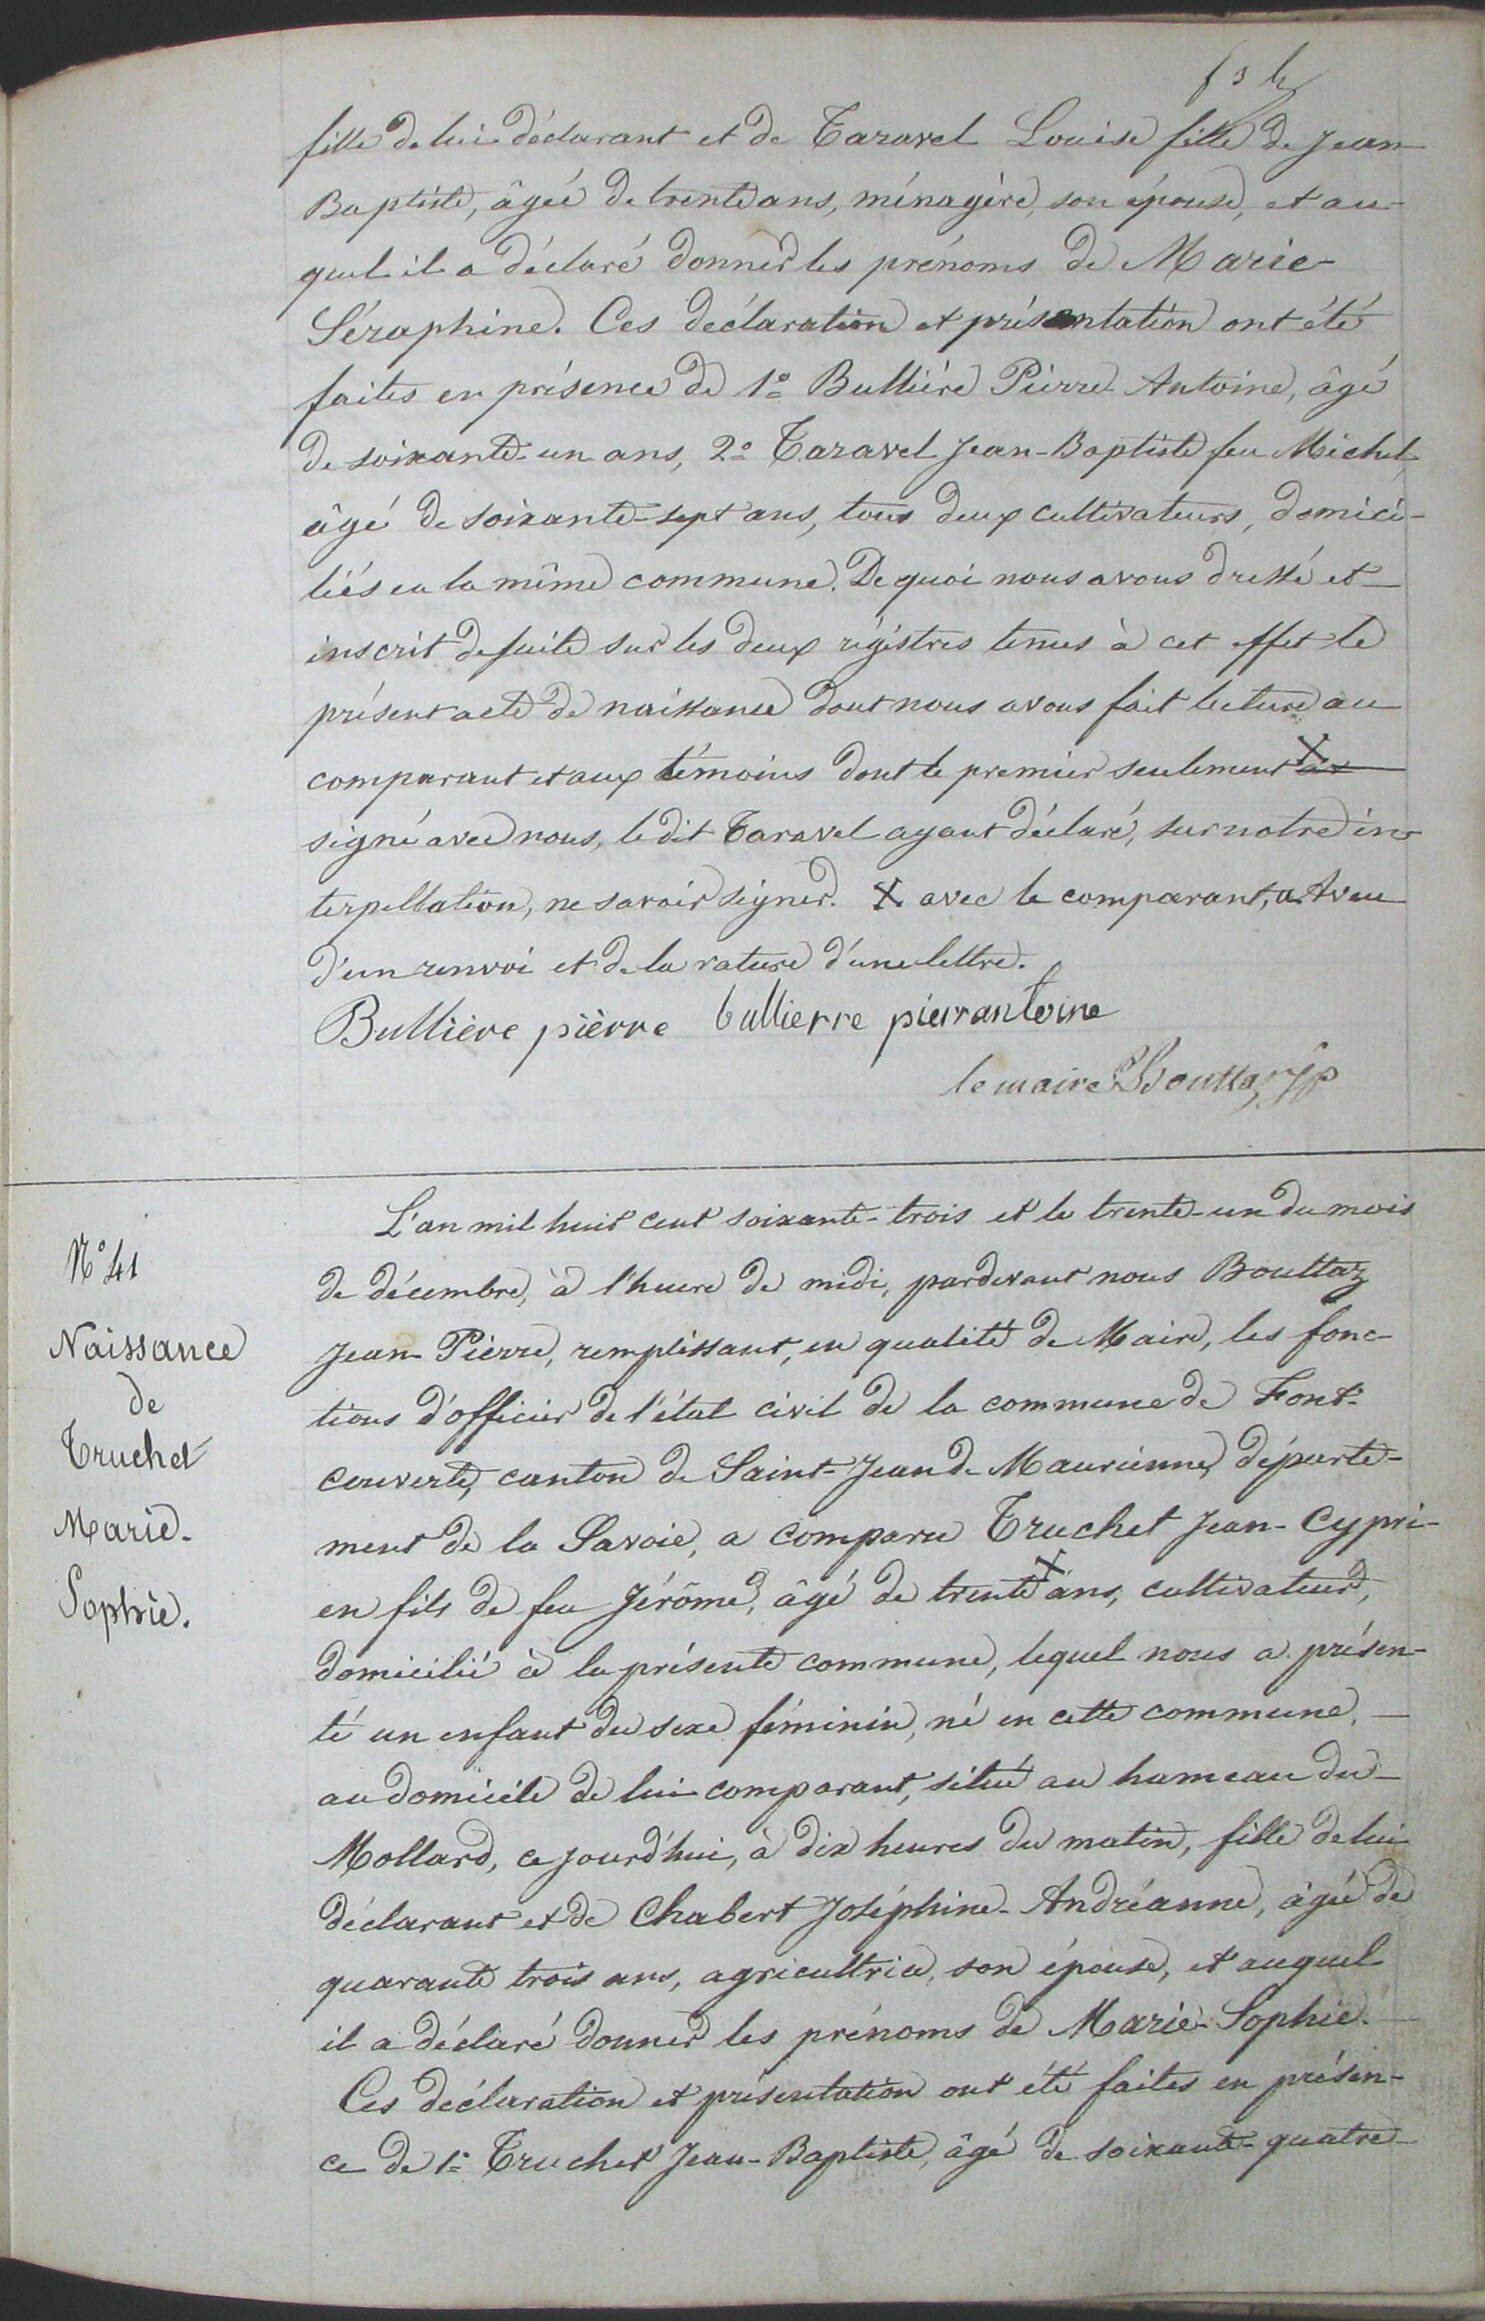 fille de lui déclarant et de Taravel Louise fille de Jean-
Baptiste, âgée de trente ans, ménagère, son épouse, et au-
quel il a déclaré donner les prénoms de Marie-
Séraphine. Ces déclaration et présentation ont été
faites en présence de 1° Bullière Pierre-Antoine, âgé
de soixante-un ans, 2° Taravel Jean-Baptiste feu Michel,
âgé de soixante-sept ans, tous deux cultivateurs, domici-
liés en la même commune. De quoi nous avons dressé et
inscrit de suite sur les deux régistres tenus à cet effet le
présent acte de naissance dont nous avons fait lecture au
comparant et aux témoins dont le premier seulement X
signé avec nous, le dit Taravel ayant déclaré, sur notre in-
terpellation, ne savoir signer. X avec le comparant, a. Aveu
d'un renvoi et de la rature d'une lettre.
Bullière pièrre bullierre pierrantoine
le maire Bouttaz Jp
L'an mil huit cent soixante-trois et le trente-un du mois
de décembre, à l'heure de midi, pardevant nous Bouttaz
Jean-Pierre, remplissant, en qualité de Maire, les fonc-
tions d'officier de l'état civil de la commune de Font-
couverte, canton de Saint-Jean de Maurienne, départe-
ment de la Savoie, a comparu Truchet Jean-Cypri-
en fils de feu Jérôme, âgé de trente X ans, cultivateur,
domicilié à la présente commune, lequel nous a présen-
té un enfant du sexe féminin, né en cette commune,
au domicile de lui comparant, situé au hameau du
Mollard, ce jourd'hui, à dix heures du matin, fille de lui
déclarant et de Chabert Joséphine-Andréanne, âgée de
quarante trois ans, agricultrice, son épouse, et auquel
il a déclaré donner les prénoms de Marie-Sophie.
Ces déclaration et présentation ont été faites en présen-
ce de 1° Truchet Jean-Baptiste, âgé de soixante-quatre
N° 41
Naissance
de
Truchet
Marie-
Sophie.